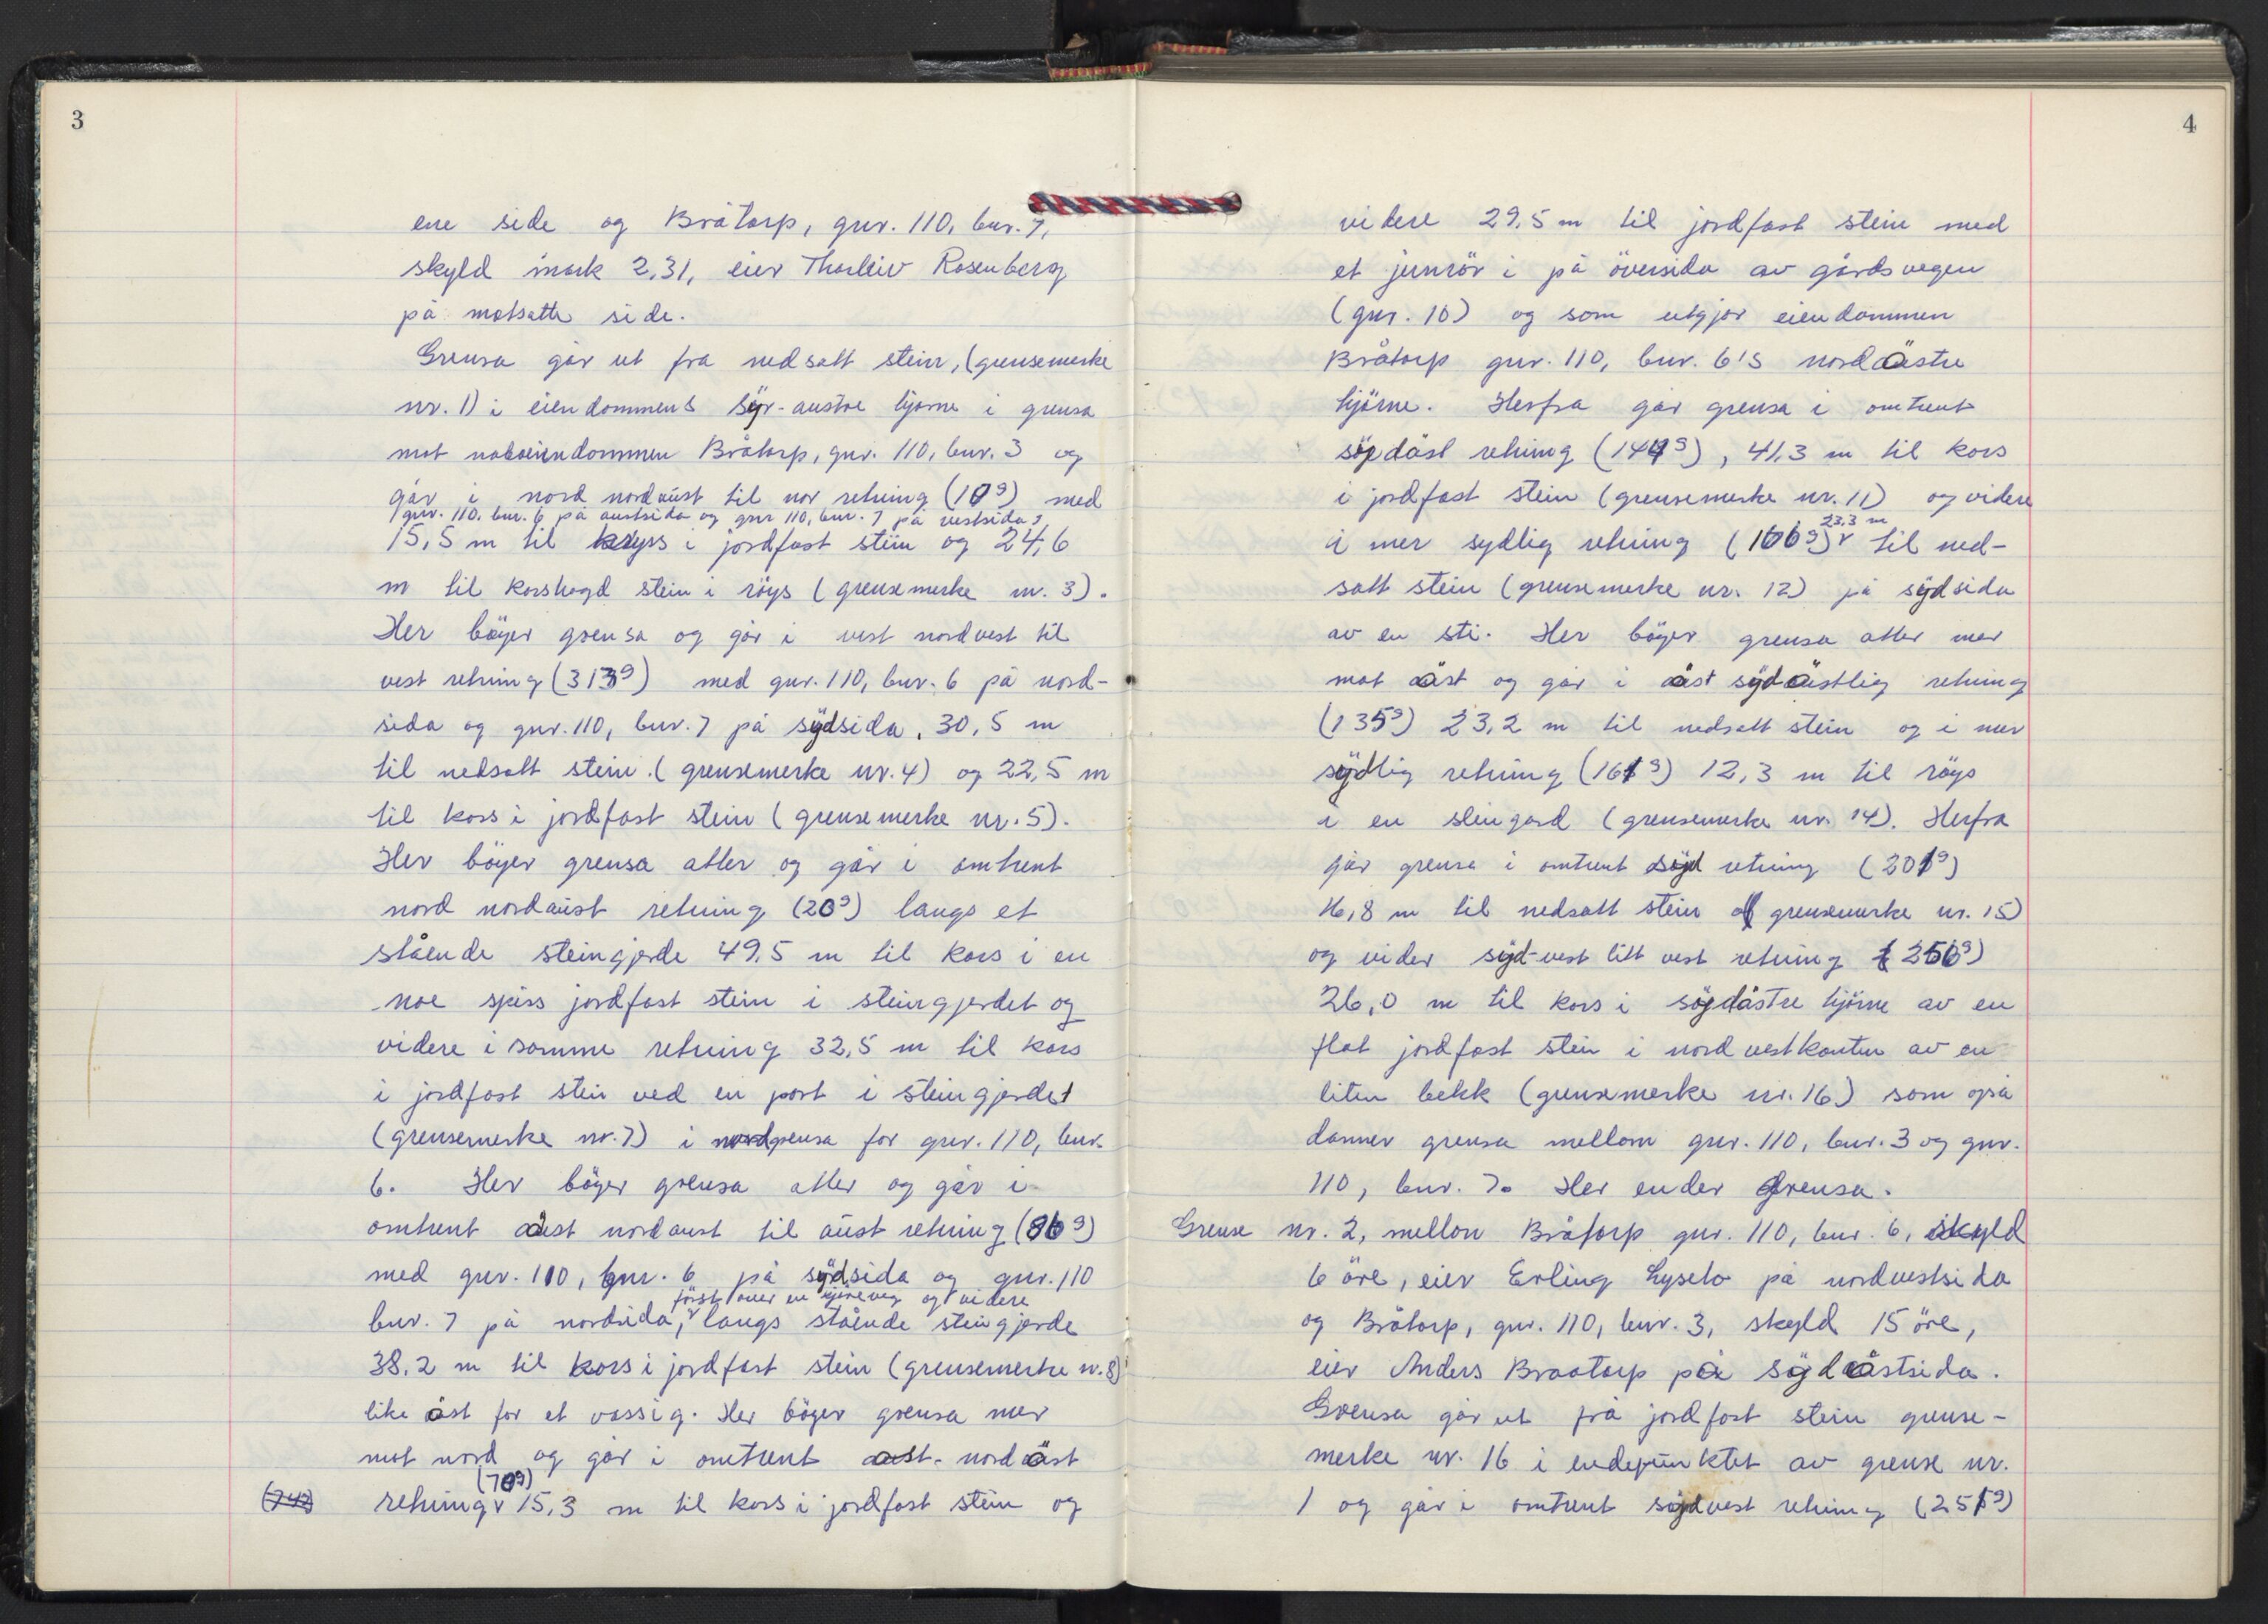 3
ene side og Bråtorp, gnr. 110, bnr. 7,
skyld mark 2,31, eier Thorleiv Rosenberg
på motsatte side.
Grensa går ut fra nedsatt stein, (grensemerke
nr. 1) i eiendommens syr-austre hjørne i grensa
mot naboeiendommen Bråtorp, gnr. 110, bnr. 3 og
går i nord nordaust til nor retning (10g) med
gnr. 110. bnr. 6 på austsida og gnr 110, bnr. 7 på vestsida
15,5 m til kryss i jordfast stein og 24,6
m til korshogd stein i röys (grensemerke nr. 3).
Her böyer grensa og går i vest nordvest til
vest retning (313g) med gnr. 110, bnr. 6 på nord-
sida og gnr. 110, bnr. 7 på sydsida, 30,5 m
til nedsatt stein (grensemerke nr. 4) og 22,5 m
til kors i jordfast stein (grensemerke nr. 5).
Her böyer grensa atter og går i omtrent
nord nordaust retning (20g) langs et
stående steingjerde 49,5 m til kors i en
noe spiss jordfast stein i steingjerdet og
videre i samme retning 32,5 m til kors
i jordfast stein ved en port i steingjerdet
(grensemerke nr. 7) i nordgrensa for gnr. 110, bnr.
6. Her böyer grensa atter og går i
omtrent aust nordaust til aust retning (86g)
med gnr. 110, bnr. 6 på sydsida og gnr. 110
först over en kjöreveg og videre
bnr. 7 på nordsida, langs stående steingjerde
38,2 m til kors i jordfast stein (grensemerke nr. 8)
like öst for et vassig. Her böyer grensa mer
mot nord og går i omtrent aust-nordöst
(70g)
(74g) retning 15,3 m til kors i jordfast stein og
4
videre 29,5 m til jordfast stein med
et jernrör i på översida av gårdsvegen
(gnr. 10) og som utgjör eiendommen
Bråtorp gnr. 110, bnr. 6's nordöstre
hjörne. Herfra går grensa i omtrent
sydöst retning (144g), 41,3 m til kors
i jordfast stein (grensemerke nr. 11) og videre
23,3 m
i mer sydlig retning (166g) til ned-
satt stein (grensemerke nr. 12) på sydsida
av en sti. Her böyer grensa atter mer
mot öst og går i öst sydöstlig retning
(135g) 23,2 m til nedsatt stein og i mer
sydlig retning (161g) 12,3 m til röys
i en steingard (grensemerke nr. 14). Herfra
går grensa i omtrent syd retning (201g)
16,8 m til nedsatt stein (grensemerke nr. 15)
og vider syd-vest litt vest retning (256g)
26,0 m til kors i sydöstre hjörne av en
flat jordfast stein i nordvestkanten av en
liten bekk (grensemerke nr. 16) som også
danner grensa mellom gnr. 110, bnr. 3 og gnr.
110, bnr. 7. Her ender grensa.
Grense nr. 2, mellom Bråtorp gnr. 110, bnr. 6, skyld
6 öre, eier Erling Lyselo på nordvestsida
og Bråtorp, gnr. 110, bnr. 3, skyld 15 öre,
eier Anders Braatorp på sydöstsida.
Grensa går ut frå jordfast stein grense-
merke nr. 16 i endepunktet av grense nr.
1 og går i omtrent sydvest retning (251g)